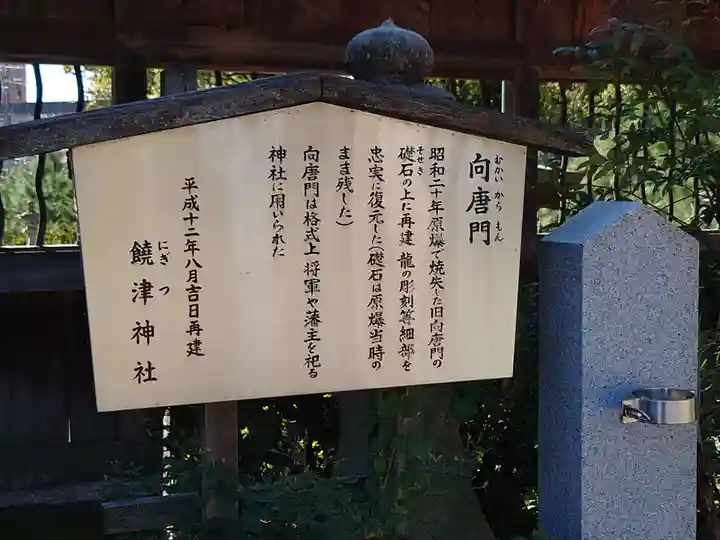 向唐門
むかい から もん
昭和二十年原爆で焼失した旧向唐門の
礎石の上に再建 龍の彫刻等細部を
そせき
忠実に復元した(礎石は原爆当時の
まま残した)
向唐門は格式上 将軍や藩主を祀る
神社に用いられた
平成十二年八月吉日再建
饒津神社
にぎ つ